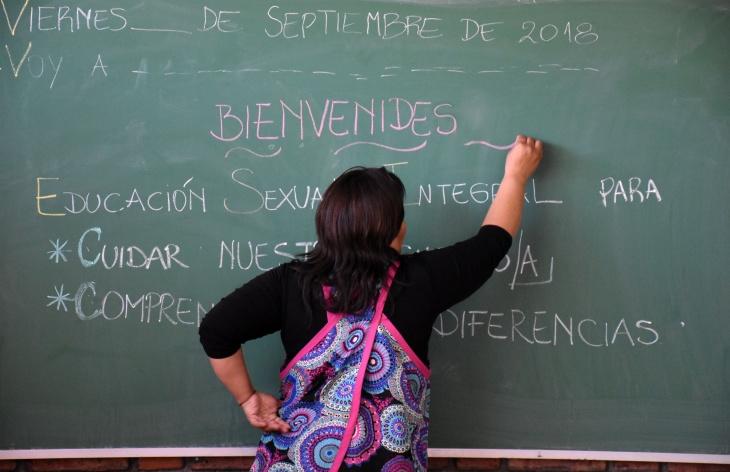 VIERNES___ DE SEPTIEMBRE DE 2018
VOY A _ _ _ _ _ _ _ _ _ _ _
BIENVENIDES
EDUCACIÓN SEXUAL INTEGRAL PARA
* CUIDAR
* DIFERENCIAS.